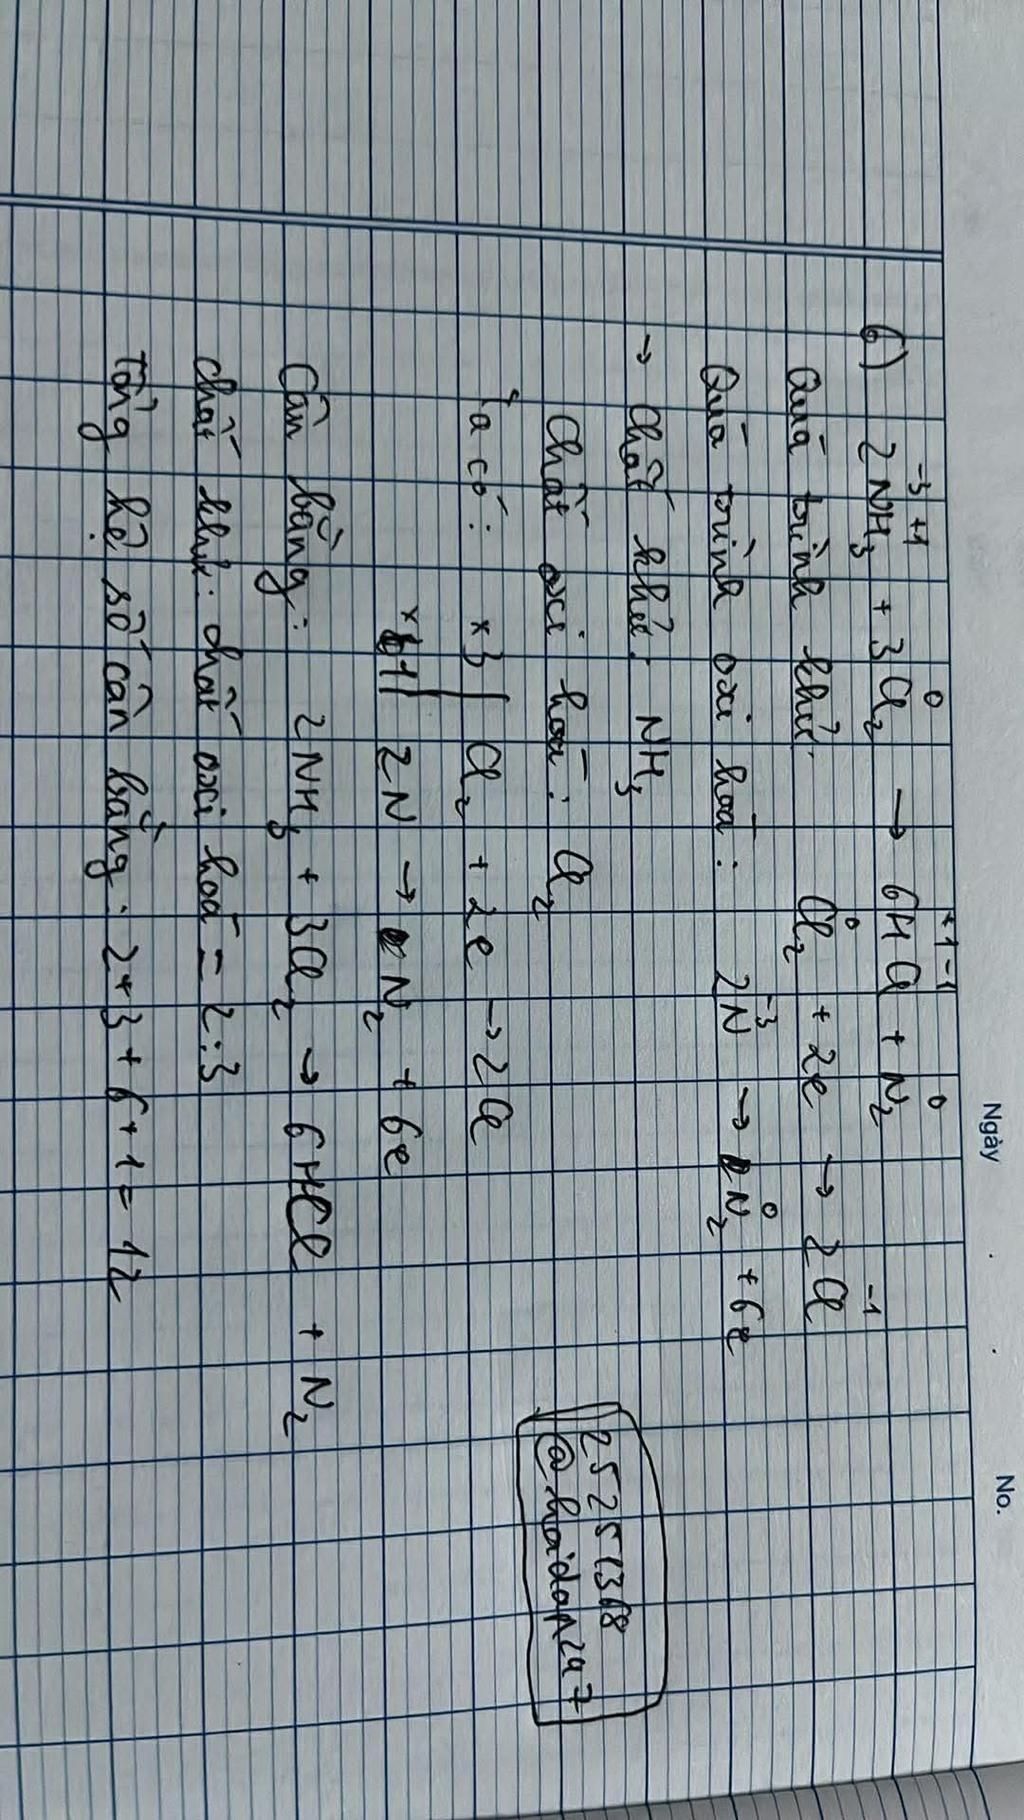 Ngày
No.
6) 2NH₃ + 3Cl₂ → 6HCl + N₂
-3 +1 0 +1 -1 0
Quá trình khử: Cl₂⁰ + 2e → 2Cl⁻¹
Quá trình oxi hoá: 2N⁻³ → N₂⁰ + 6e
→ Chất khử: NH₃
Chất oxi hoá: Cl₂
Ta có: x3 | Cl₂ + 2e → 2Cl
x1 | 2N → N₂ + 6e
Cân bằng: 2NH₃ + 3Cl₂ → 6HCl + N₂
chất khử: chất oxi hoá = 2:3
Tổng hệ số cân bằng: 2+3+6+1= 12
@hoidap247